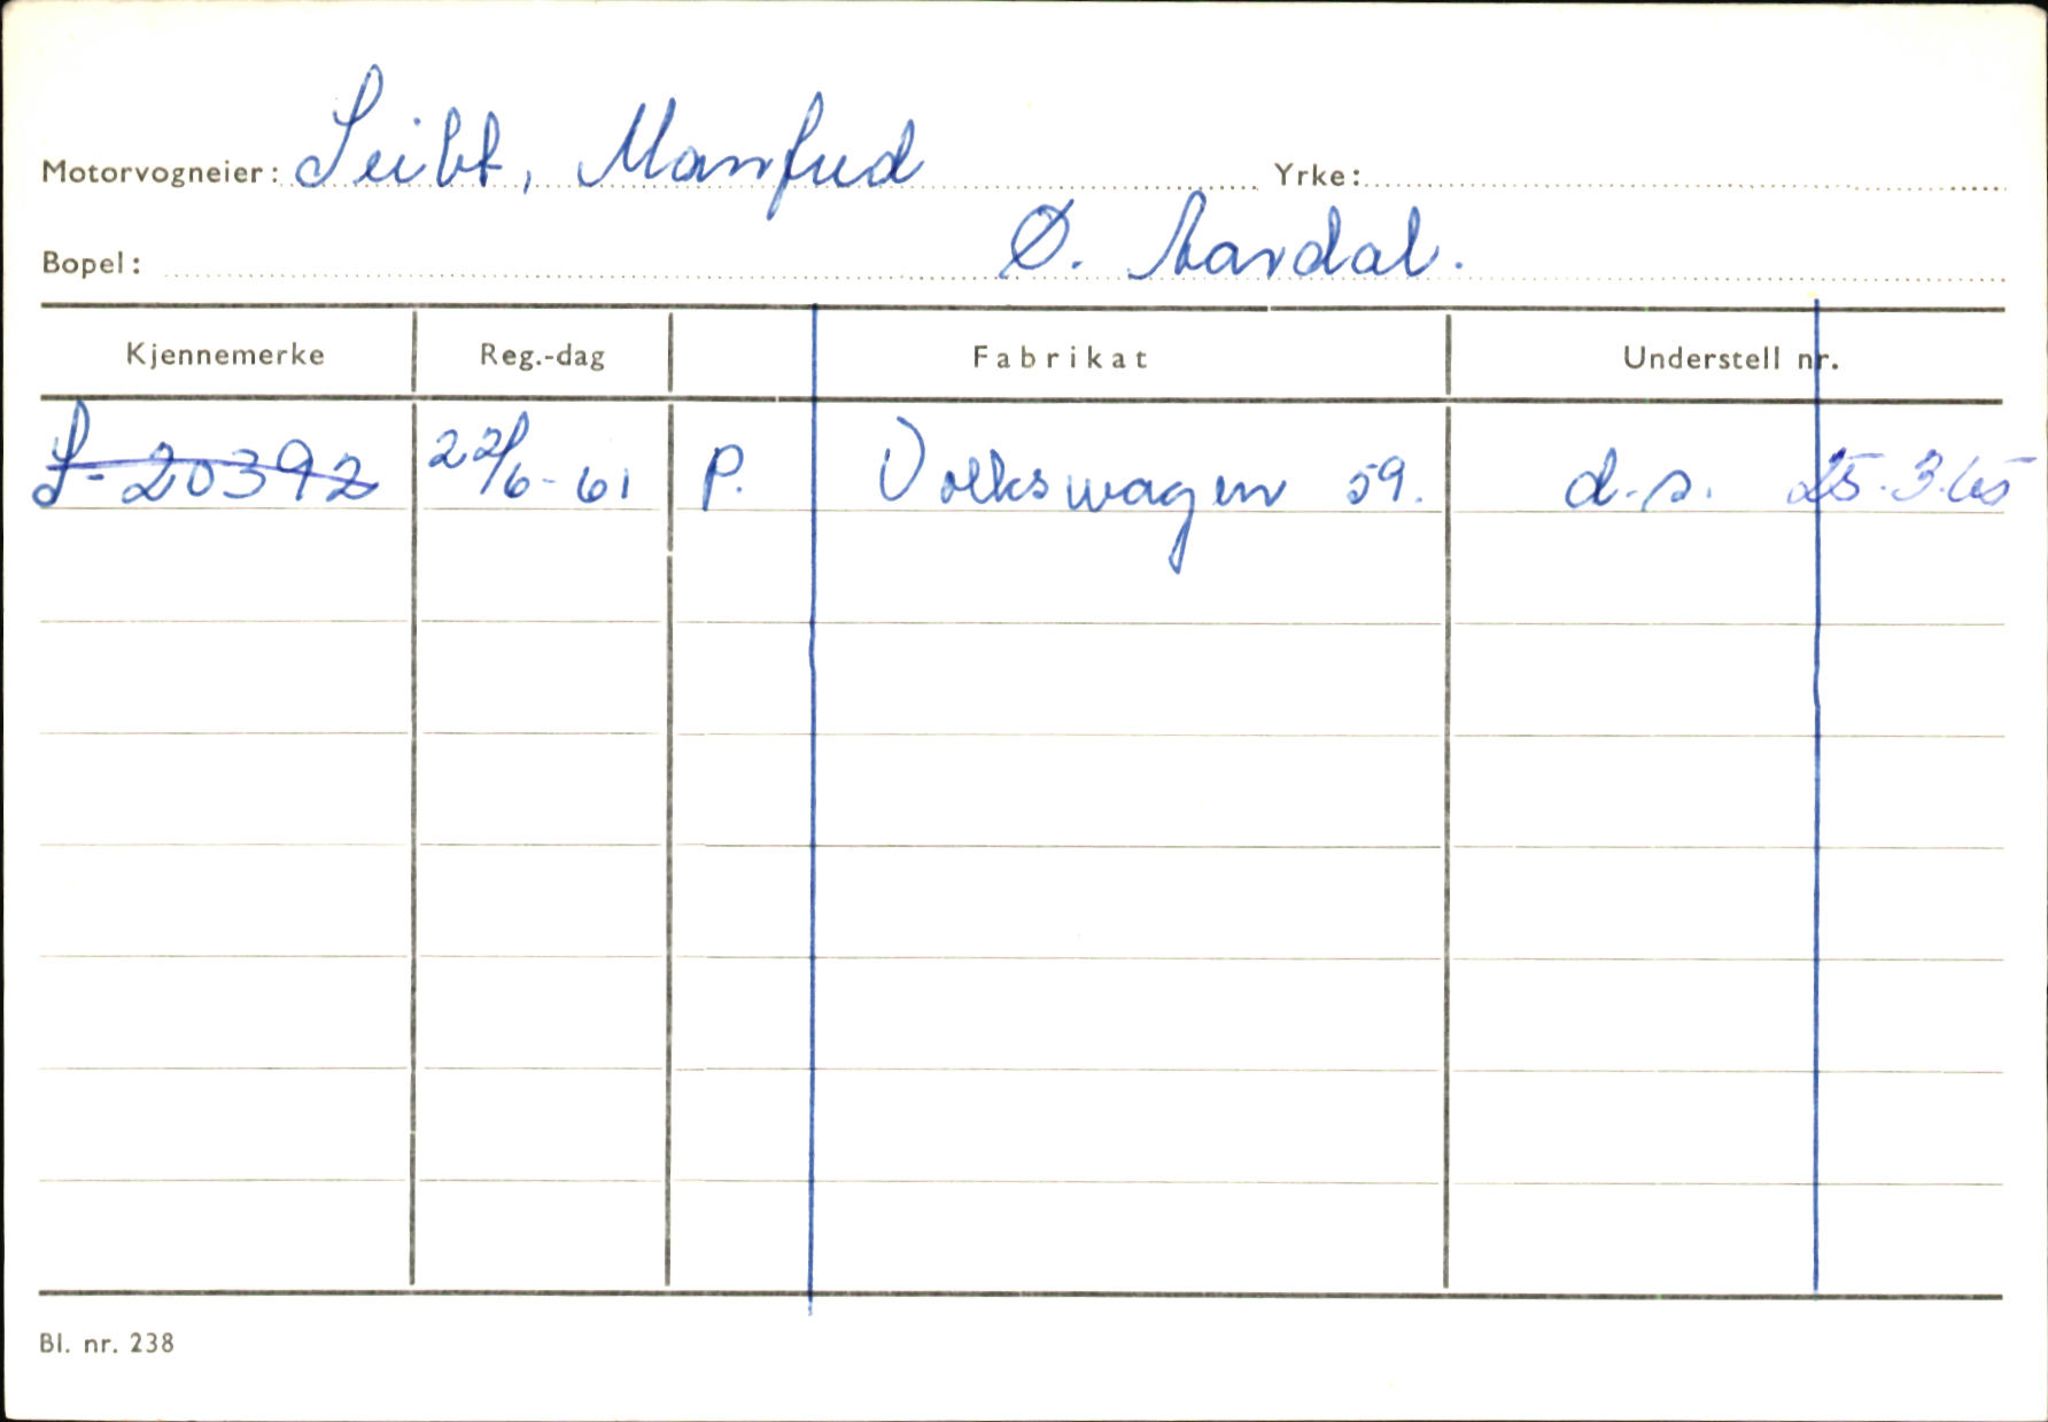 Motorvogneier: Seibt, Manfred Yrke:
Bopel: Ø. Aardal.
Kjennemerke Reg.-dag Fabrikat Understell nr.
S-20392 22/6-61 P. Volkswagen 59. d.s. 25.3.65
Bl. nr. 238